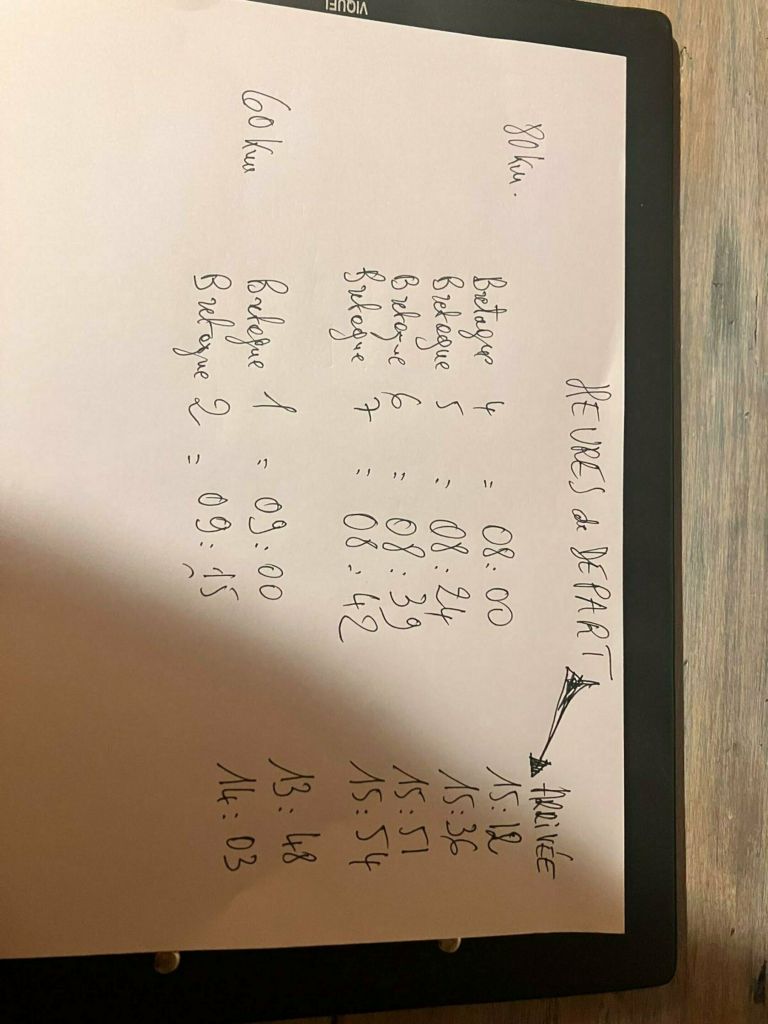 VIQUEL
HEURES de DEPART ARRIVÉE
80 km. Bretagne 4 = 08:00 15:12
Bretagne 5 = 08:24 15:36
Bretagne 6 = 08:39 15:51
Bretagne 7 = 08:42 15:54
60 km Bretagne 1 = 09:00 13:48
Bretagne 2 = 09:15 14:03